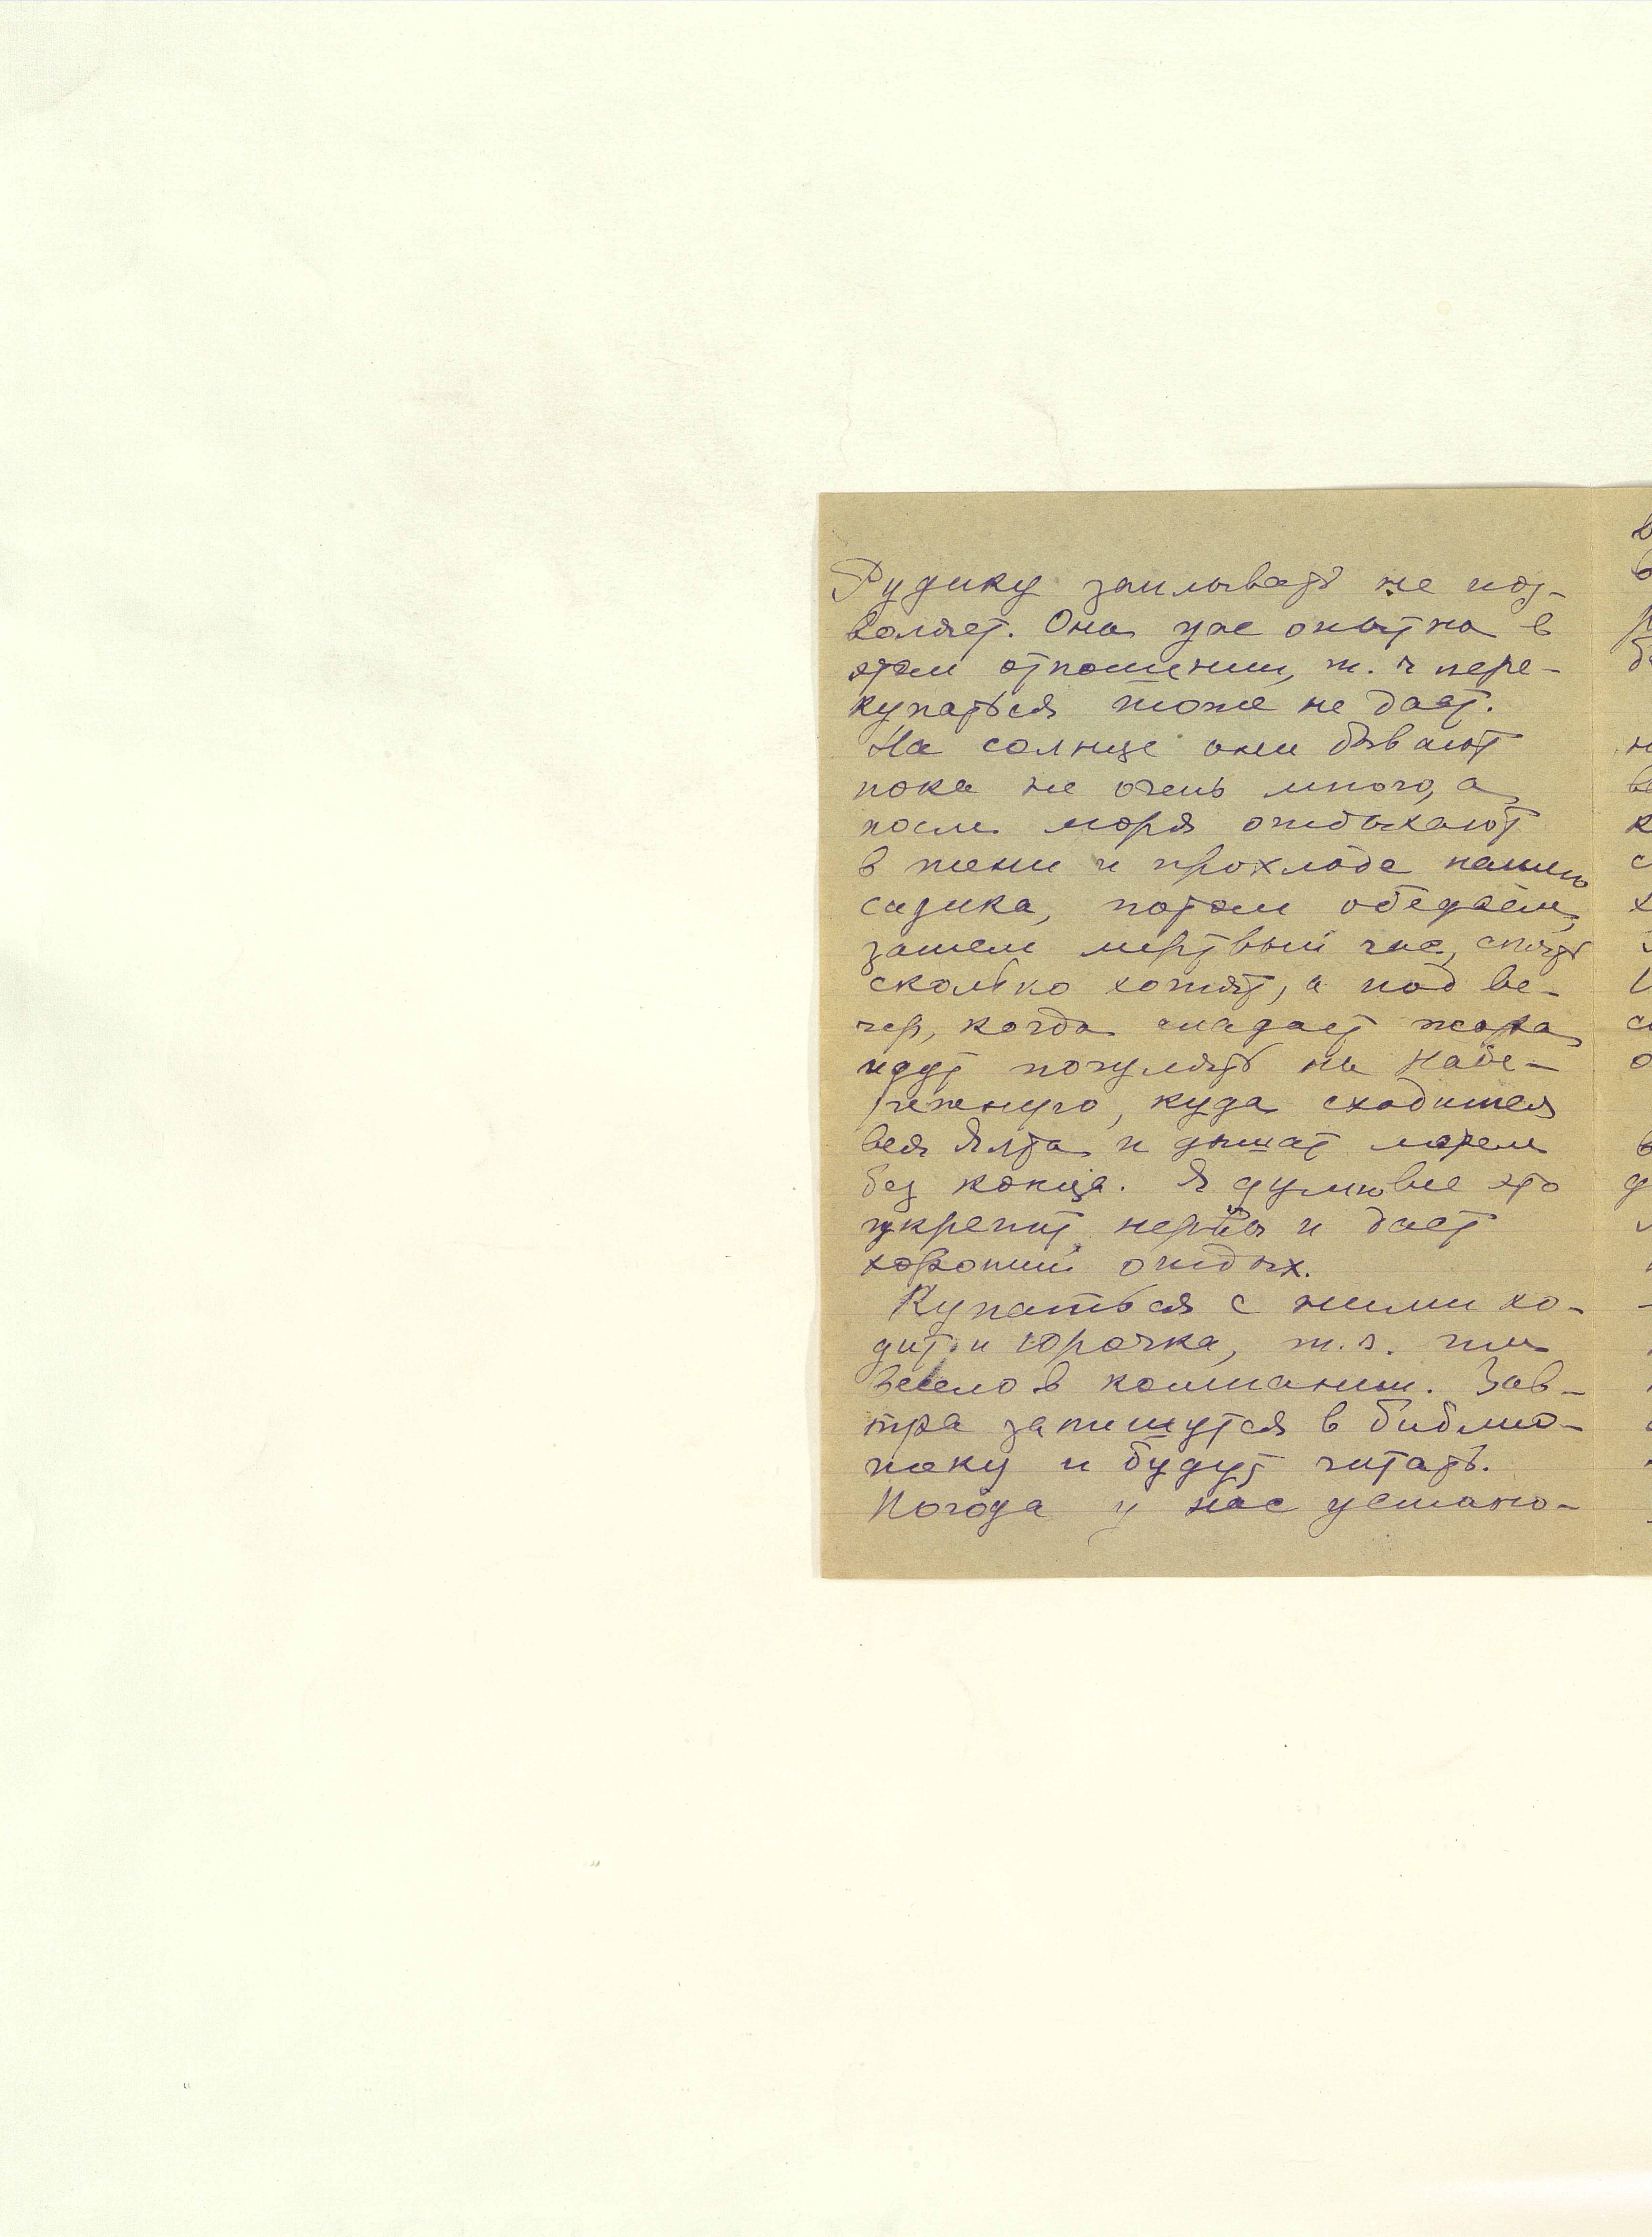 Рудику заплывать не поз-
воляет. Она уже опытна в
этом отношении, т. ч пере-
купаться тоже не дает.
На солнце они бывают
пока не очень много, а
после моря отдыхают
в тени и прохладе нашего
садика, потом обедаем,
затем мертвый час, спят
сколько хотят, а под ве-
чер, когда спадает жара
идут погулять на Набе-
режную, куда сходится
вся Ялта и дышат морем
без конца. Я думаю все это
укрепит нервы и дает
хороший отдых.
Купаться с ними хо-
дит и Юрочка, т.ч. им
весело в компании. Зав-
тра запишутся в библио-
теку и будут читать.
Погода у нас устано-